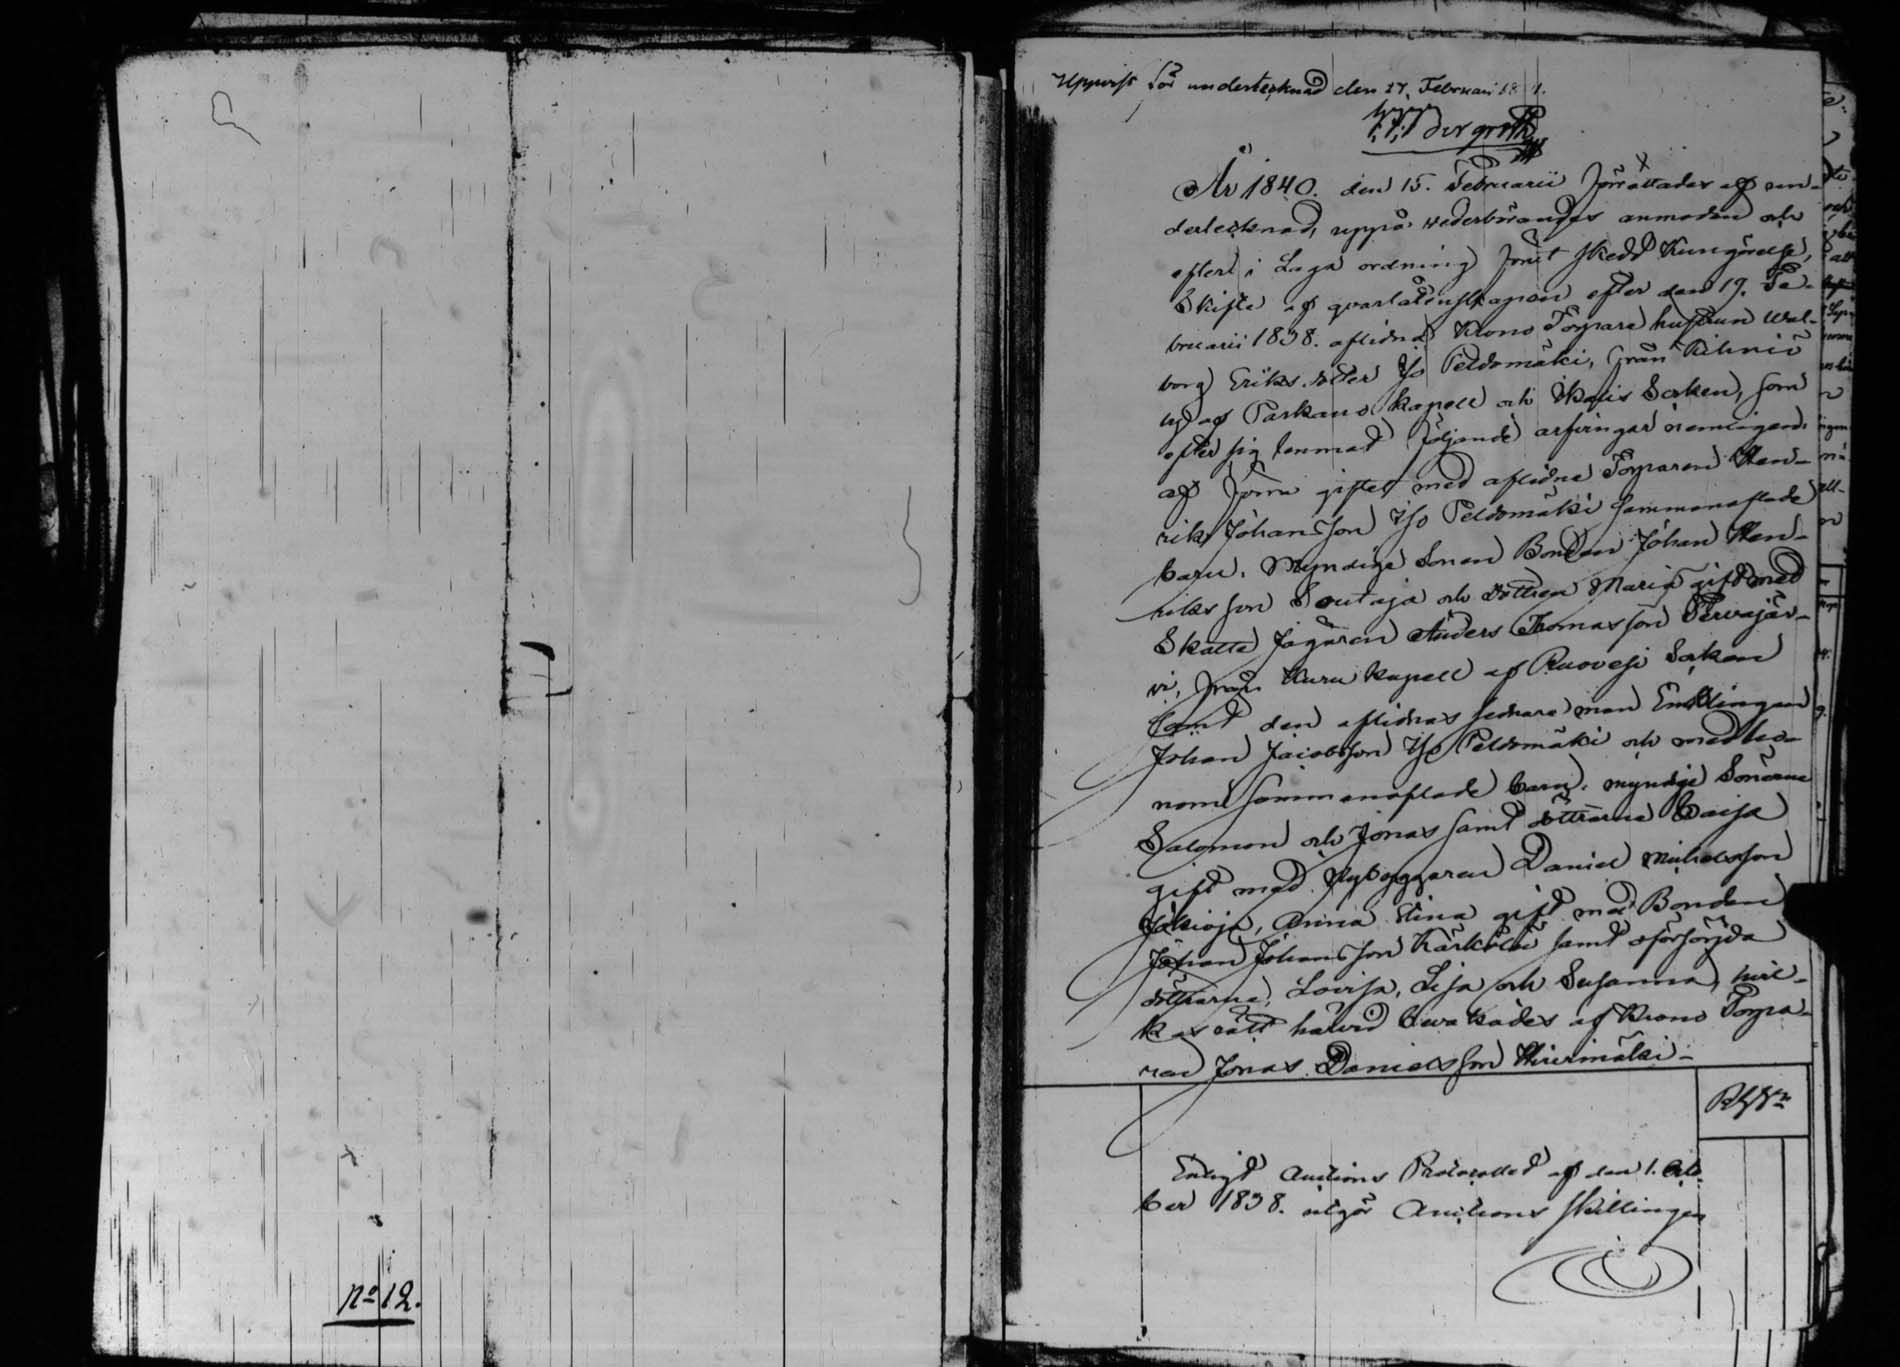 No 12.
Uppvist för undertecknad den 27. Februari 18 1.
År 1840. den 15. Februarii förrättades af un-
dertecknad, uppå wederbörandes anmodan och
efter i Laga ordning förut skedd Kungörelse,
Skifte af qvarlåtenskapen efter den 19. Fe-
bruarii 1838. aflidna Krono Torpare hustrun Wal-
borg Eriks dotter Iso Peldomäki, från Kihniö
by af Parkano Kapell och Ikalis Socken, som
efter sig lemnat följande arfvingar nemligen:
af förra giftet med aflidne Torparen Hen-
rik Johansson Iso Peldomäki sammanaflade
barn. Myndige Sonen Bonden Johan Hen-
riksson Soutaja och dottren Maria gift med
Skatte Jägaren Anders Thomasson Pervajär-
vi, från Kuru Kapell af Ruovesi Socken
samt den aflidnas sednare man Enklingen
Johan Jacobsson Iso Peldomäki och med ho-
nom sammanaflade barn, myndige Sönerne
Salomon och Jonas samt döttrarne Caisa
gift med Nybyggaren Daniel Michelsson
Jokioja, Anna Stina gift med Bonden
Johan Johansson Kärkölä samt oförsörjda
döttrarne, Lovisa, Lisa och Susanna, hvil-
kas rätt härvid bevakades af Krono Torpa-
ren Jonas Danielsson Hiirimäki –
Enligt Auctions Protocollet af den 1. Octo-
ber 1838. utgör Auctions skillingen